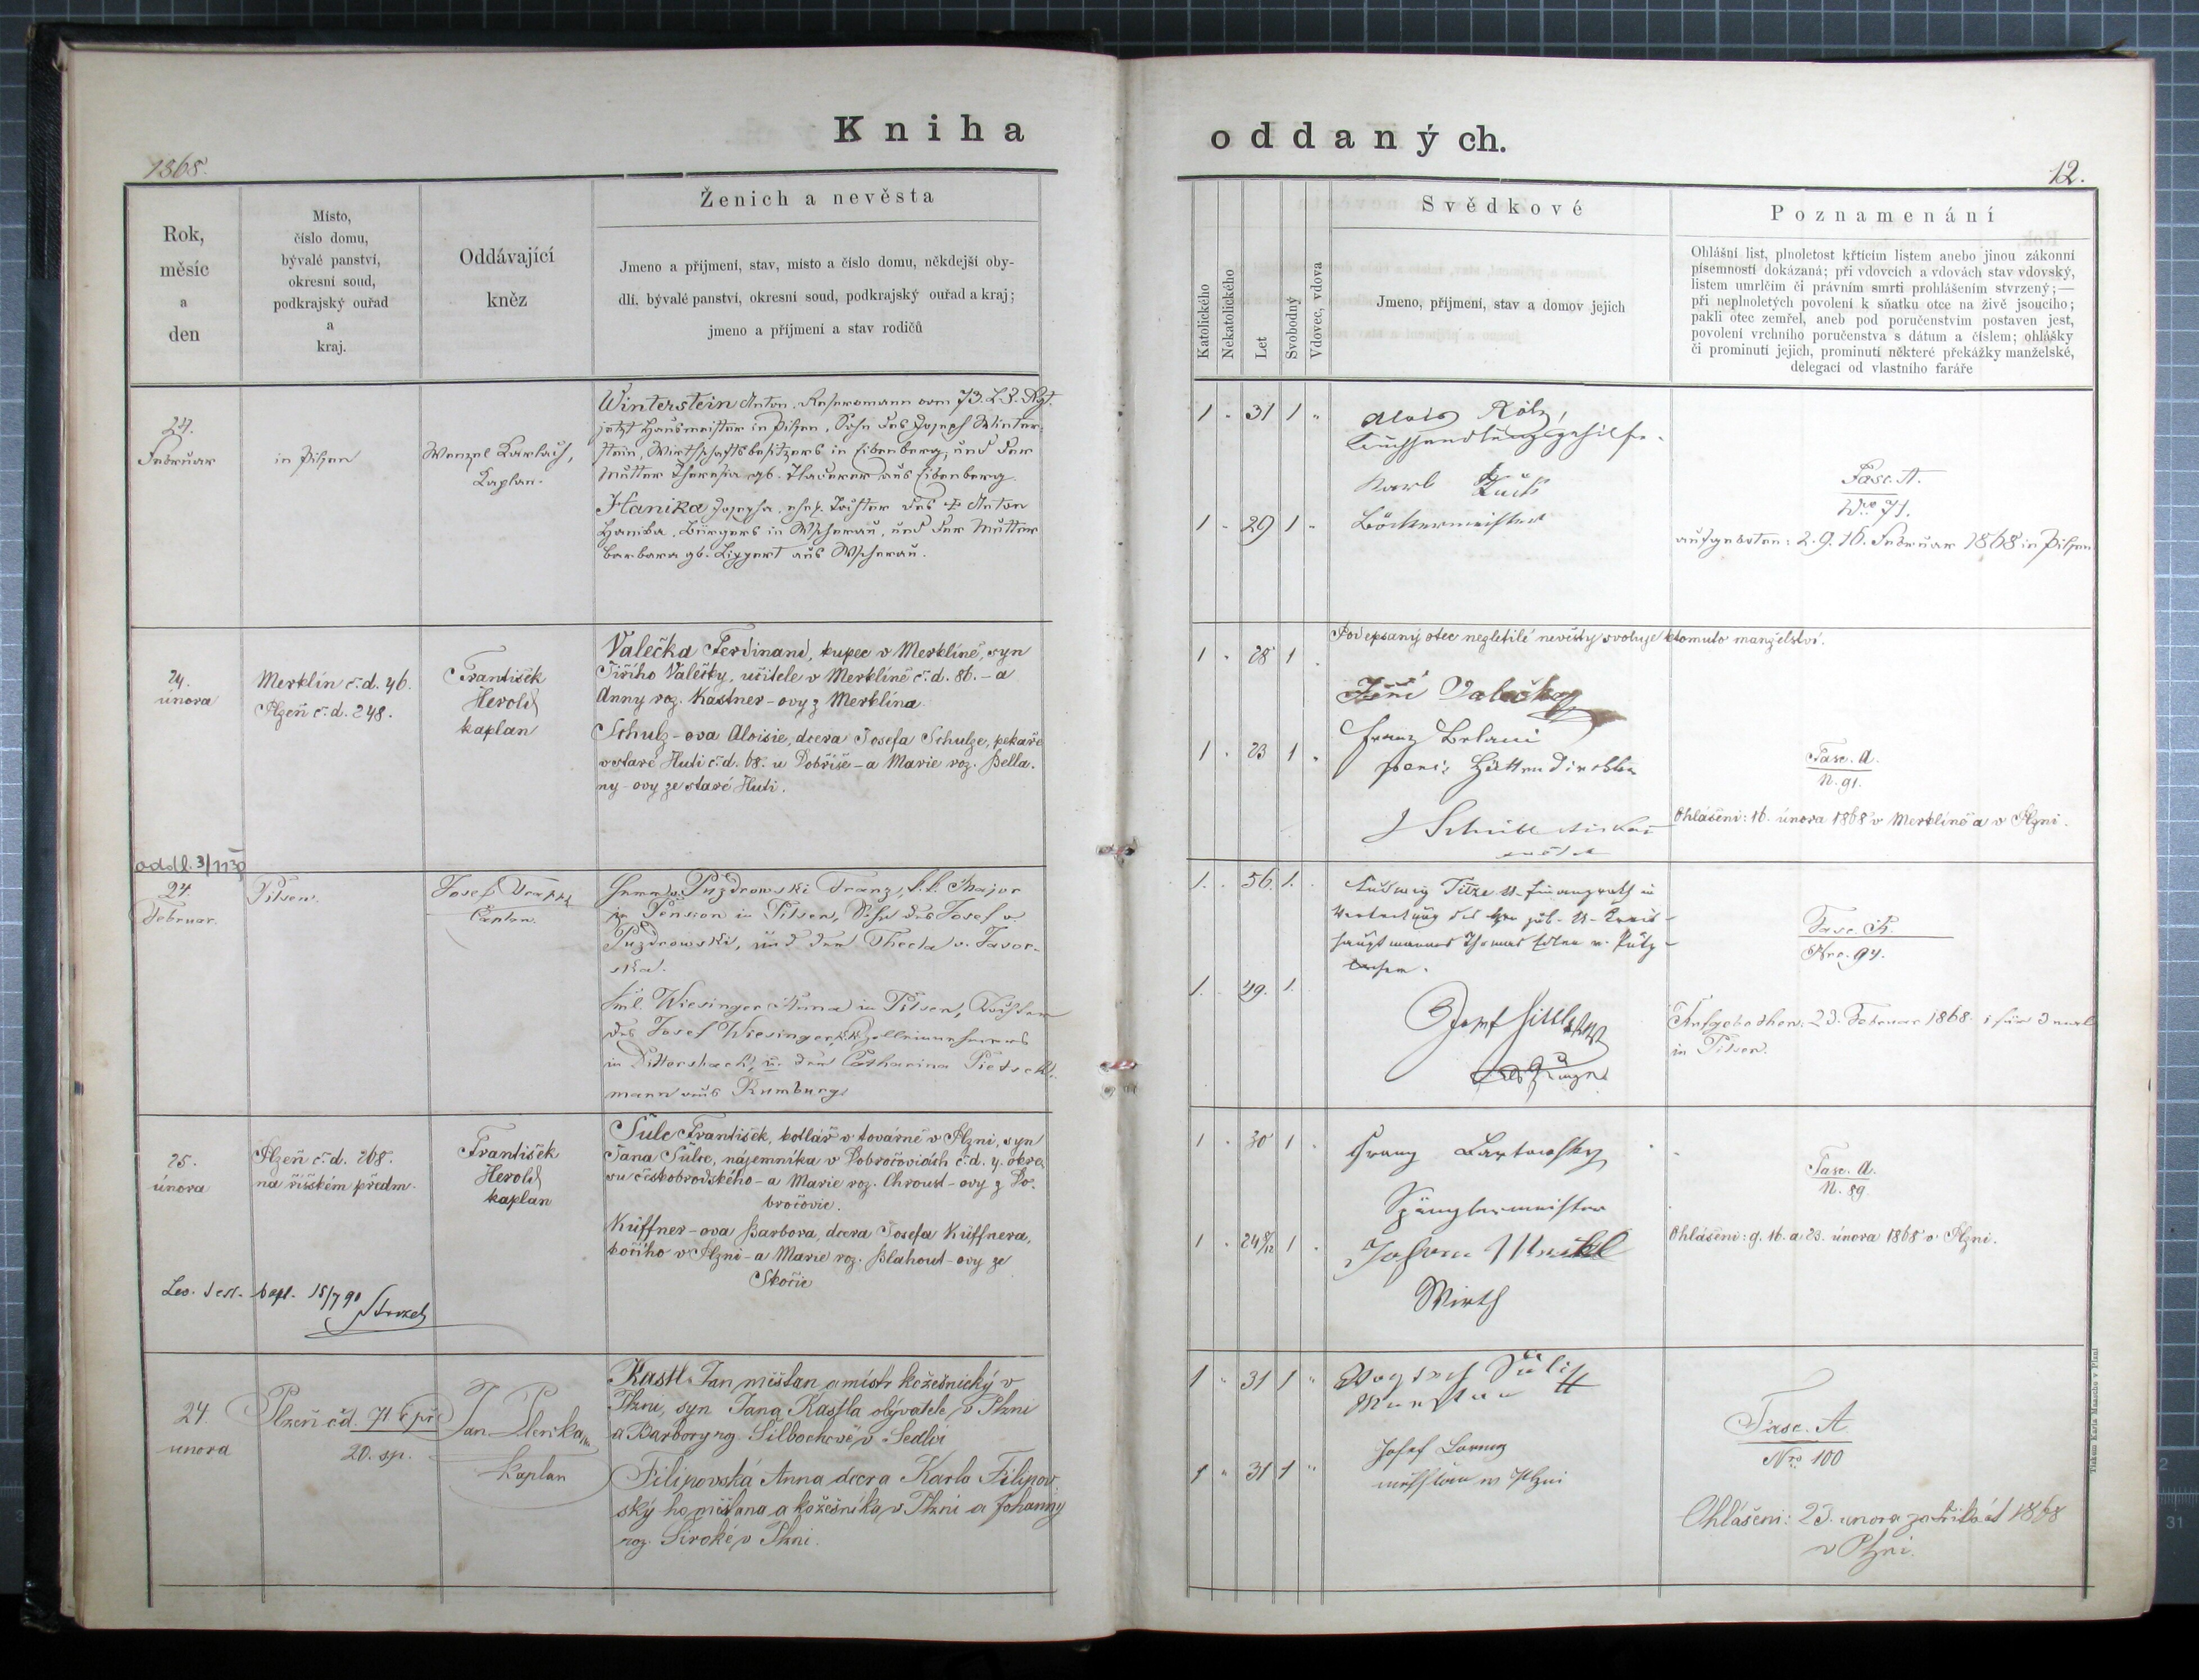 Kniha
oddaných.
1868.
12.
Rok,
měsíc
a
den
Místo,
číslo domu,
bývalé panství,
okresní soud,
podkrajský ouřad
a
kraj.
Oddávající
kněz
Ženich a nevěsta
Jmeno a příjmení, stav, místo a číslo domu, někdejší oby-
dlí. bývalé panství, okresní soud, podkrajský ouřad a kraj;
jmeno a příjmení a stav rodičů
Katolického
Nekatolického
Let
Svobodný
Vdovec, vdova
Svědkové
Jmeno, příjmení, stav a domov jejich
Poznamenání
Ohlášní list, plnoletost křticím listem anebo jinou zákonní
písemností dokázaná; při vdovcích a vdovách stav vdovský,
listem umrlčím či právním smrti prohlášením stvrzený; —
při neplnoletých povolení k sňatku otce na živě jsoucího;
pakli otec zemřel, aneb pod poručenstvím postaven jest,
povolení vrchního poručenstva s dátum a číslem; ohlášky
či prominutí jejich, prominutí některé překážky manželské,
delegací od vlastního faráře
24.
Februar
in Pilsen
Wenzel Karlach,
Kaplan.
Winterstein Anton, Reservmann vom 73. L. I. Rgt.
jetzt Hausmeister in Pilsen, Sohn des Joseph Winter-
stein, Wirthschaftsbesitzers in Eibenberg, und der
Mutter Theresia gb. aus Eibenberg.
Hanika Josepha, ehel. Tochter des † Anton
Hanika, Bürgers in Wscherau, und der Mutter
Barbara gb. Lippert aus Wscherau.
1 " 31 1 "
1 " 29 1 "
Alois Kölz,
Karl
Bäckermeister
Fasc. A.
Nro 71.
aufgeboten: 2. 9. 16. Februar 1868 in Pilsen
24.
února
Merklín č. d. 46.
Plzeň č. d. 248.
František
Herold
kaplan
Valečka Ferdinand, kupec v Merklíně, syn
Jiřího Valečky, učitele v Merklíně č. d. 86. – a
Anny roz. Kastner-ovy z Merklína.
Schulz-ova Aloisie, dcera Josefa Schulze, pekaře
v staré Huti č. d. 68. u Dobříše – a Marie roz. Bella-
ny-ovy ze staré Huti.
1 " 28 1 "
1 " 23 1 "
Podepsaný otec nezletilé nevěsty svoluje k tomuto manželství.
Jiří Valečka
Franz Belani
pens. Hüttendirektor
Fasc. A.
N. 91.
Ohlášeni: 16. února 1868 v Merklíně a v Plzni.
oddl. 3/11 38
24
Februar.
Pilsen.
Josef
Caplan.
Herr v. Puzdrowski Franz, k. k. Major
in Pension in Pilsen, Sohn des Josef v.
Puzdrowski, und der Thecla v. Javor-
ska.
Frl. Wiesinger Anna in Pilsen, Tochter
des Josef Wiesinger, k. k. Zolleinnehmers
in Dittersbach, u. der Catharina Pietsch-
mann aus Rumburg.
1. 56. 1.
1. 49. 1.
Ludwig Titze k. k. Finanzrath in
Vertretung des
hauptmannes Thomas Edlen v.
Josef
als Zeuge
Fasc. A.
Nro. 94.
Aufgebothen: 23. Februar 1868. 1 für 3 mal
in Pilsen.
25.
února
Plzeň č. d. 268.
na říšském předm.
František
Herold
kaplan
Šulc František, kotlář v továrně v Plzni, syn
Jana Šulce, nájemníka v Dobročovicích č. d. 4. okre-
su českobrodského – a Marie roz. Chroust-ovy z Do-
bročovic.
Küffner-ova Barbora, dcera Josefa Küffnera,
kočího v Plzni – a Marie roz. Blahout-ovy ze
Skočic
Leo. test. bapt. 15/7 90
1 " 30 1 "
1 " 24 8/12 1 "
Franz Bartowsky
Spänglermeister
Johann
Wirth
Fasc. A.
N. 89.
Ohlášeni: 9. 16. a 23. února 1868 v Plzni.
24.
unora
Plzeň č d. 71 ř. př.
20. sp.
Jan
Kaplan
Kastl Jan měšťan a mistr kožešnický v
Plzni, syn Jana Kastla obývatele v Plzni
a Barbory roz. v Sedlci
Filipovská Anna dcera Karla Filipov-
ského měšťana a kožešníka v Plzni a Johanny
roz. Široké v Plzni.
1 " 31 1 "
1 " 31 1 "
Josef
v Plzni
Fasc. A
Nro 100
Ohlášeni: 23. unora za třikrát 1868
v Plzni.
Tiskem Karla Maasche v Plzni